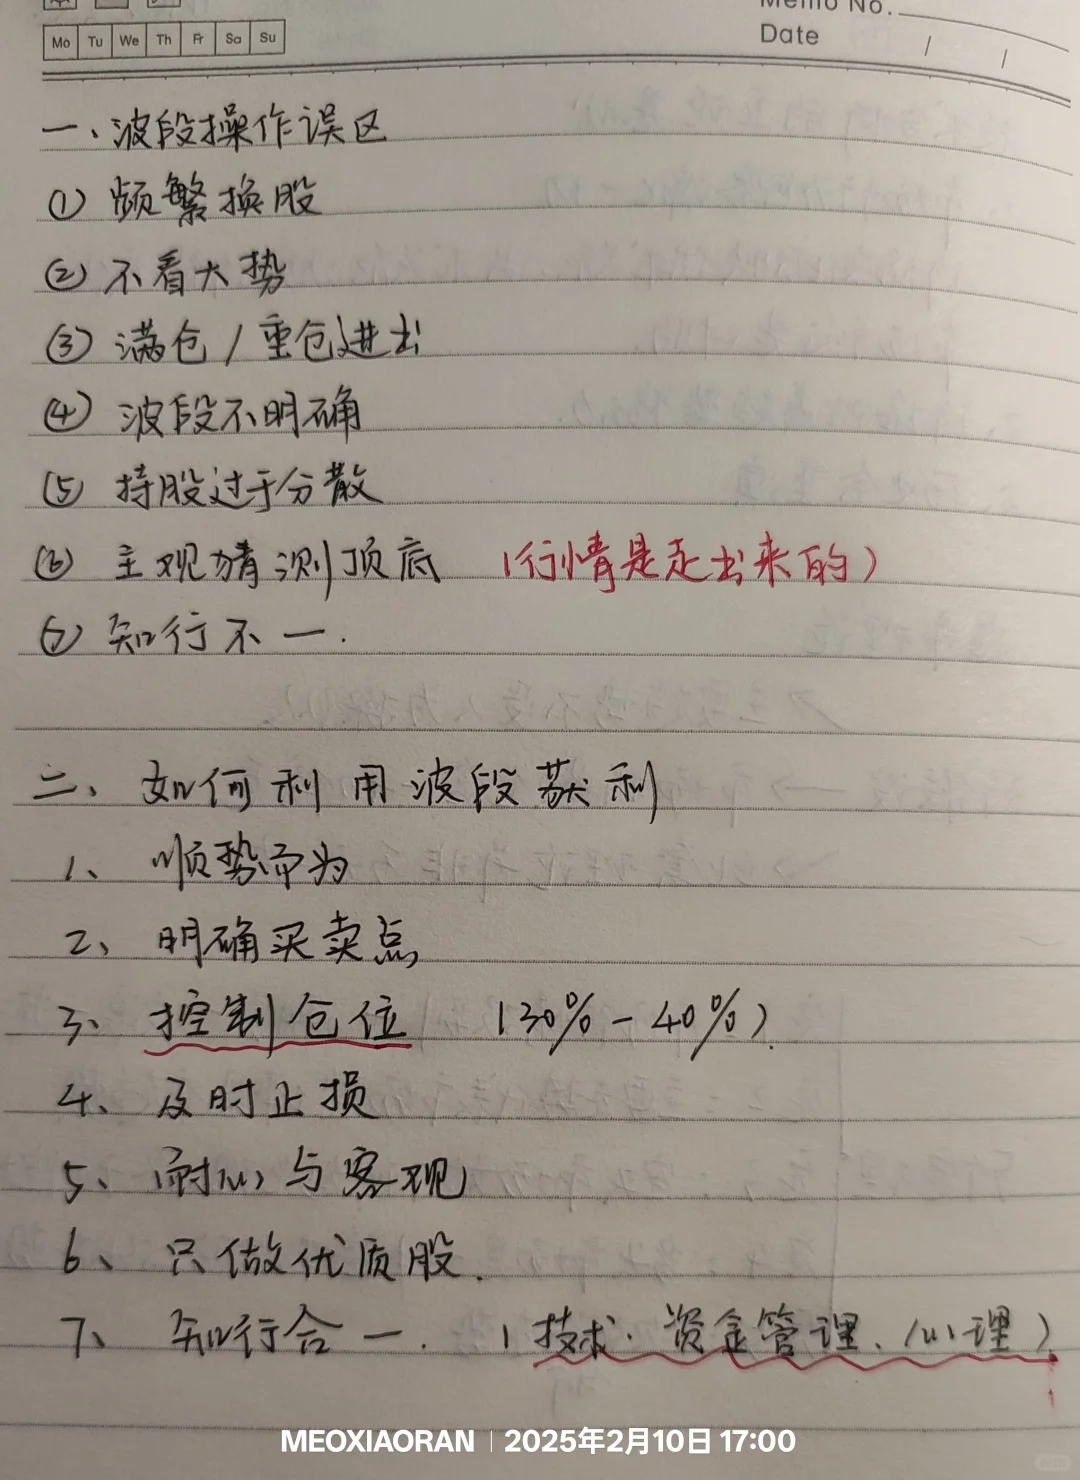 Memo No.
Mo Tu We Th Fr Sa Su
Date / /
一、波段操作误区
① 频繁换股
② 不看大势
③ 满仓/重仓进出
④ 波段不明确
⑤ 持股过于分散
⑥ 主观猜测顶底 (行情是走出来的)
⑦ 知行不一.
二、如何利用波段获利
1、顺势而为
2、明确买卖点
3、控制仓位 (30%-40%).
4、及时止损
5、耐心与客观
6、只做优质股.
7、知行合一. (技术.资金管理、心理)
MEOXIAORAN | 2025年2月10日 17:00